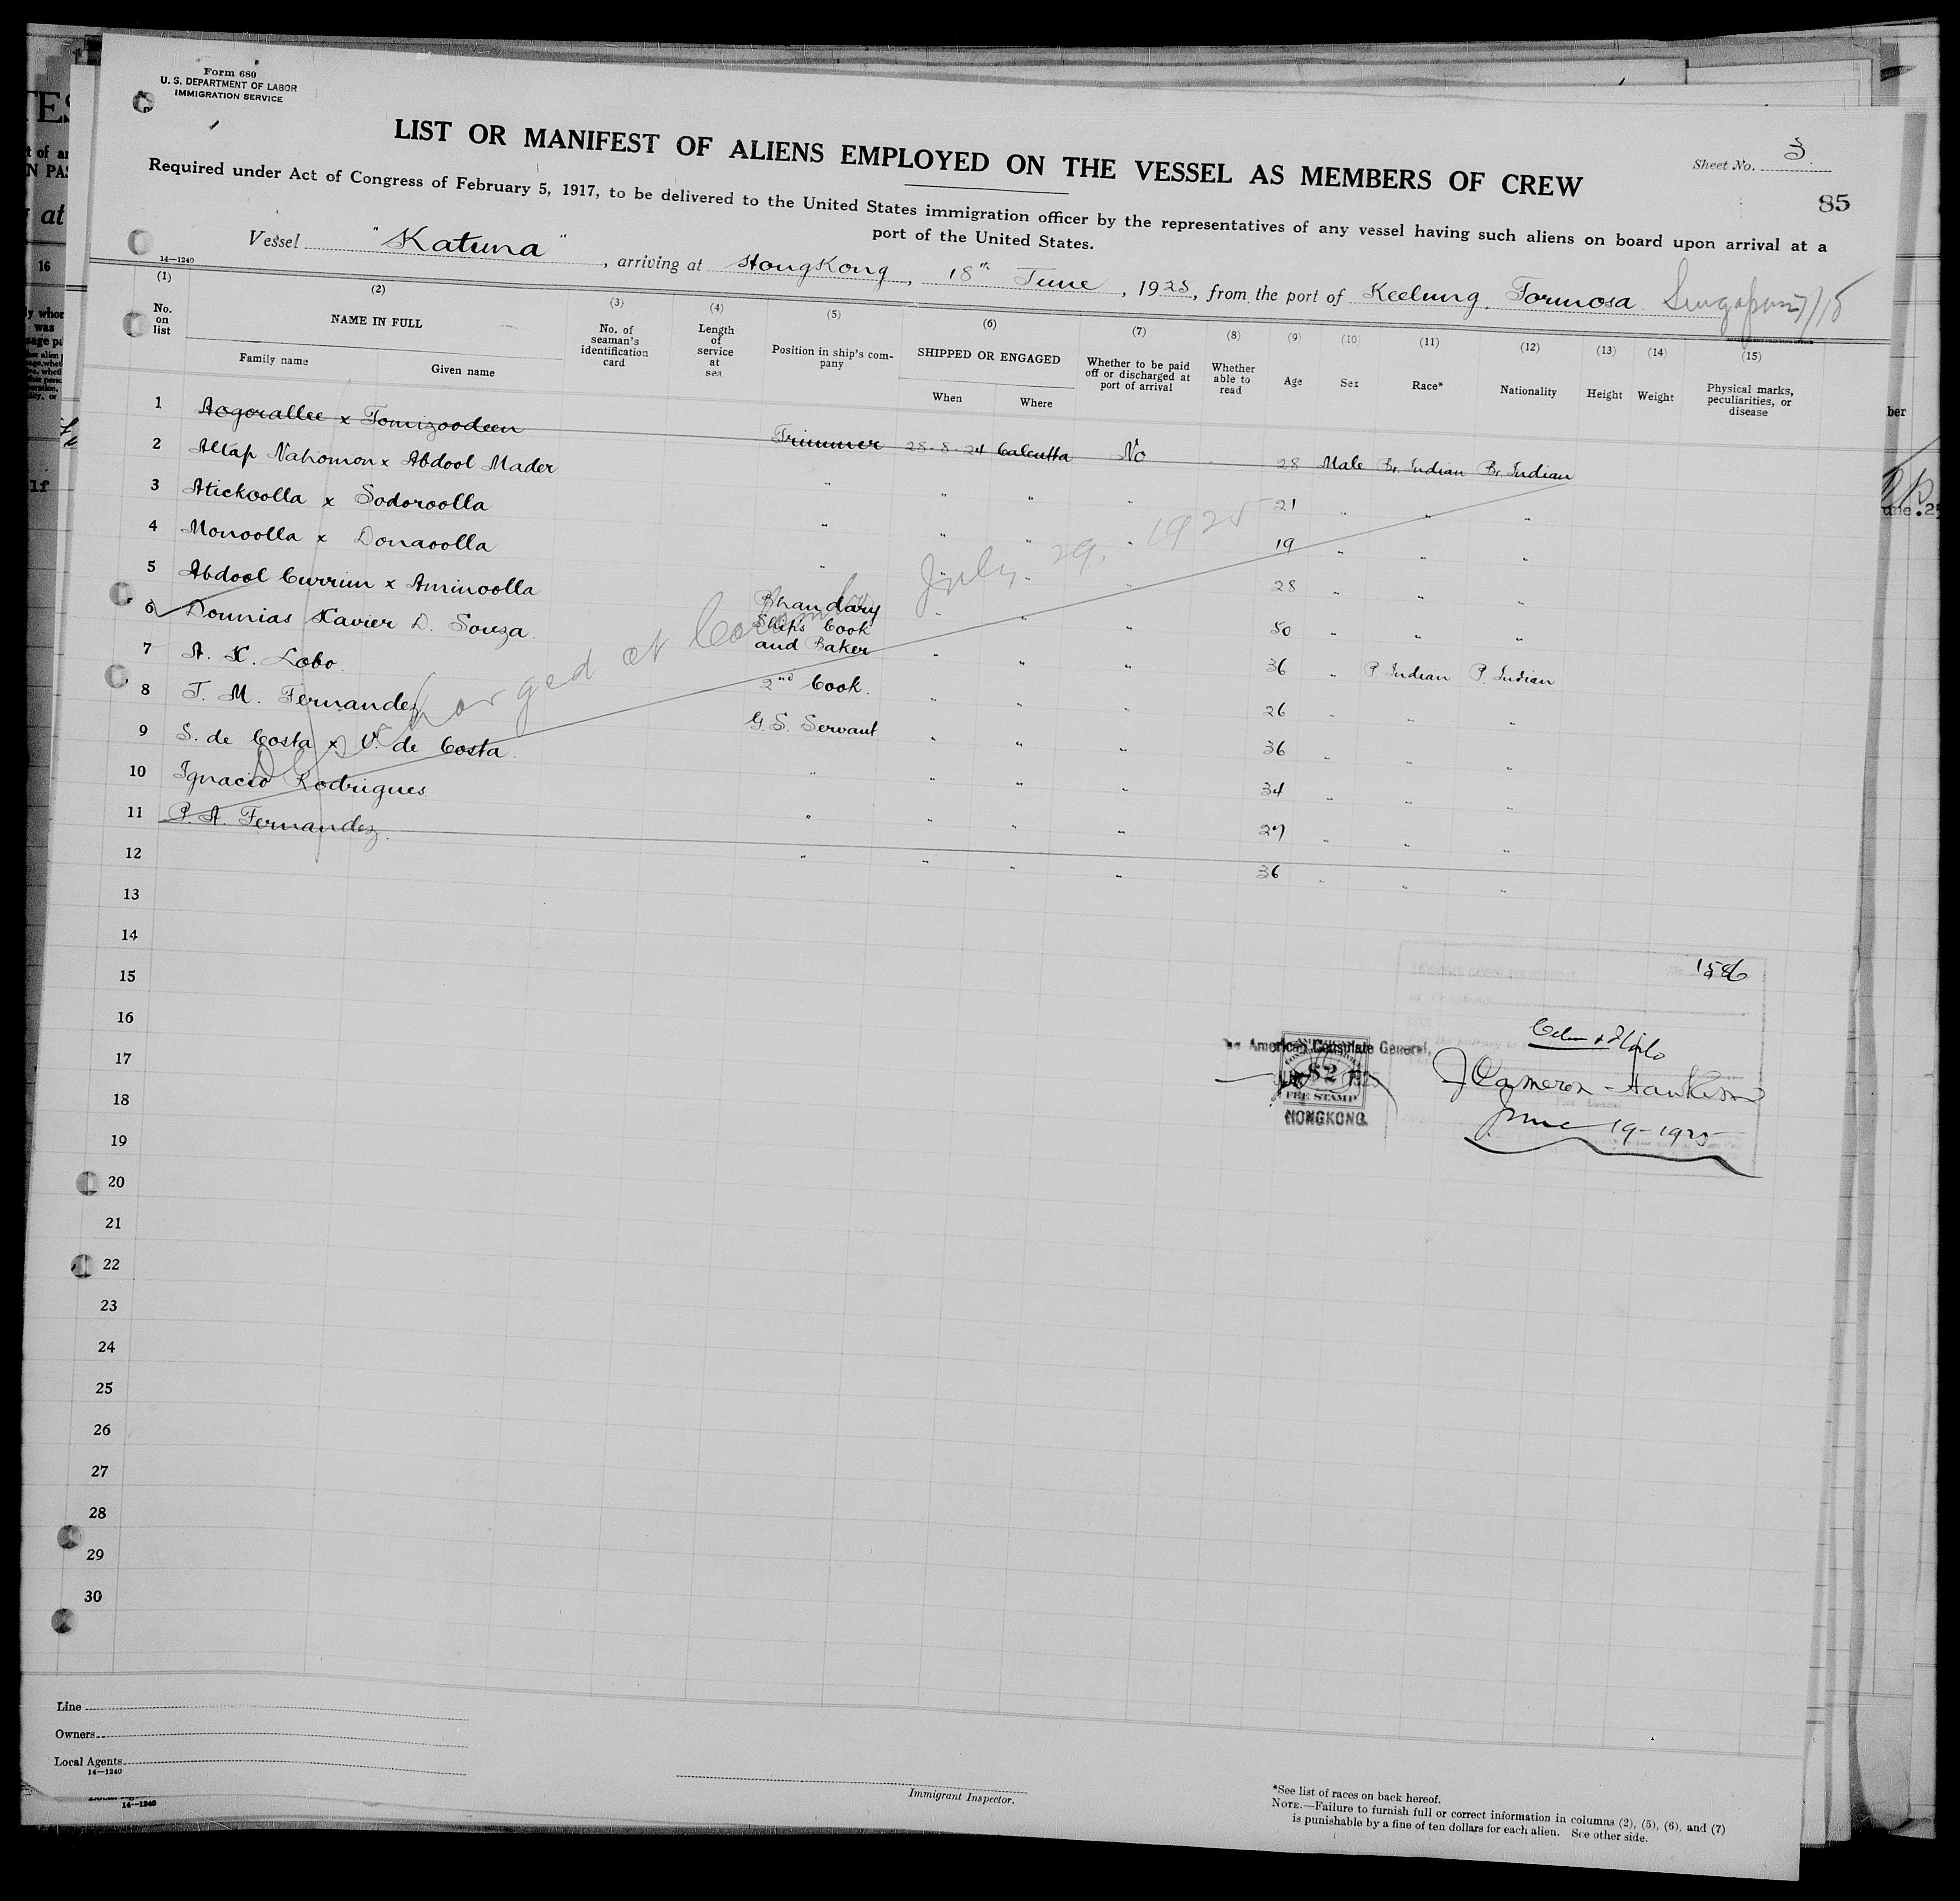 Form 680
U. S. DEPARTMENT OF LABOR
IMMIGRATION SERVICE
LIST OR MANIFEST OF ALIENS EMPLOYED ON THE VESSEL AS MEMBERS OF CREW
Sheet No. 3.
85
Required under Act of Congress of February 5, 1917, to be delivered to the United States immigration officer by the representatives of any vessel having such aliens on board upon arrival at a
port of the United States.
Vessel "Katuna", arriving at HongKong, 18th June, 1925, from the port of Keelung, Formosa Singapore 7/15
14—1240
(1) (2) (3) (4) (5) (6) (7) (8) (9) (10) (11) (12) (13) (14) (15)
No. on list NAME IN FULL No. of seaman's identification card Length of service at sea Position in ship's company SHIPPED OR ENGAGED Whether to be paid off or discharged at port of arrival Whether able to read Age Sex Race* Nationality Height Weight Physical marks, peculiarities, or disease
Family name Given name When Where
1 Aogorallee x Tomizoodeen Trimmer 28-8-24 Calcutta No 28 Male Br. Indian Br. Indian
2 Altap Nahomon x Abdool Mader " " " " 21 " " "
3 Atickoolla x Sodoroolla " " " " 19 " " "
4 Monoolla x Donaoolla " " " " 28 " " "
5 Abdool Currim x Aminoolla Bhandary " " " 50 " " "
6 Domnias Xavier D. Souza. Ship's Cook and Baker " " " 36 " P. Indian P. Indian
7 A. X. Lobo. 2nd Cook. " " " 26 " " "
8 T. M. Fernandez G. S. Servant " " " 36 " " "
9 S. de Costa x V. de Costa. " " " " 34 " " "
10 Ignacio Rodrigues " " " " 27 " " "
11 P. A. Fernandez. " " " " 36 " " "
Discharged at Colombo July 29, 1925
12
13
14
15
16
17
18
19
20
21
22
23
24
25
26
27
28
29
30
1586
American Consulate General,
$2
FEE STAMP
HONGKONG.
J Cameron-Hawkins
June 19-1925
Line
Owners
Local Agents
14—1240
14—1240
Immigrant Inspector.
*See list of races on back hereof.
NOTE.—Failure to furnish full or correct information in columns (2), (5), (6), and (7)
is punishable by a fine of ten dollars for each alien. See other side.